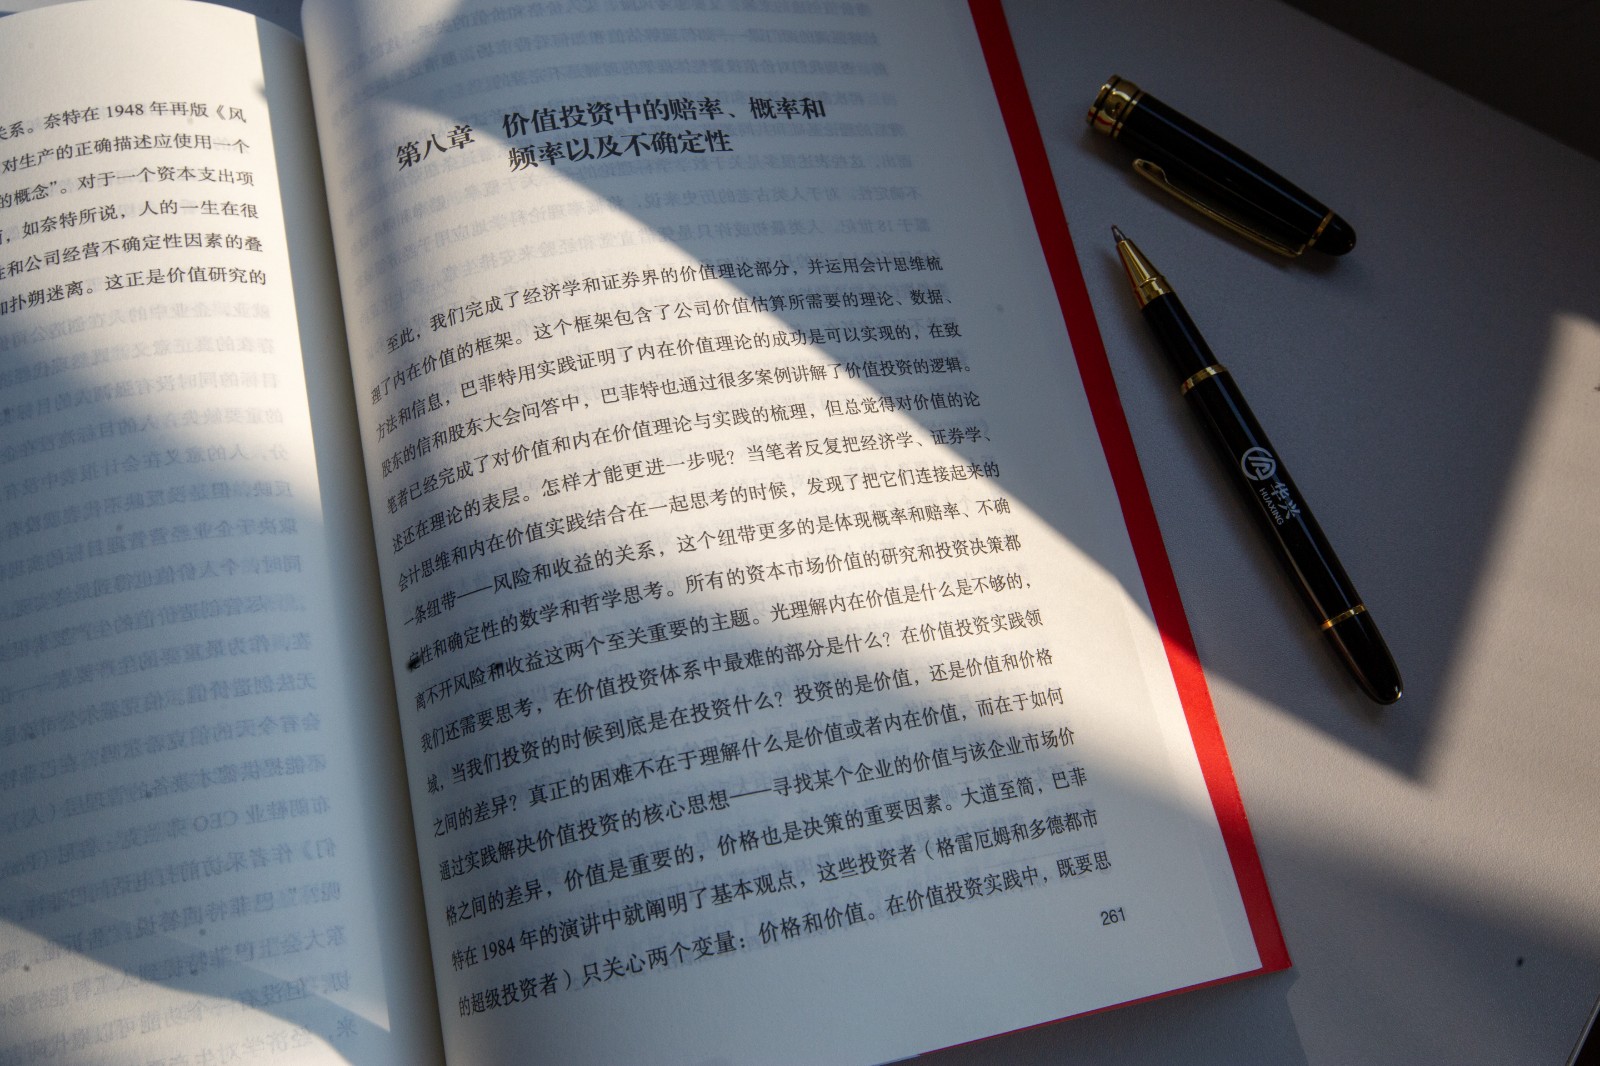 关系。奈特在 1948 年再版《风
对生产的正确描述应使用一个
的概念”。对于一个资本支出项
，如奈特所说，人的一生在很
性和公司经营不确定性因素的叠
扑朔迷离。这正是价值研究的
第八章 价值投资中的赔率、概率和
频率以及不确定性
至此，我们完成了经济学和证券界的价值理论部分，并运用会计思维梳
理了内在价值的框架。这个框架包含了公司价值估算所需要的理论、数据、
方法和信息，巴菲特用实践证明了内在价值理论的成功是可以实现的，在致
股东的信和股东大会问答中，巴菲特也通过很多案例讲解了价值投资的逻辑。
笔者已经完成了对价值和内在价值理论与实践的梳理，但总觉得对价值的论
述还在理论的表层。怎样才能更进一步呢？当笔者反复把经济学、证券学、
会计思维和内在价值实践结合在一起思考的时候，发现了把它们连接起来的
一条纽带——风险和收益的关系，这个纽带更多的是体现概率和赔率、不确
定性和确定性的数学和哲学思考。所有的资本市场价值的研究和投资决策都
离不开风险和收益这两个至关重要的主题。光理解内在价值是什么是不够的，
我们还需要思考，在价值投资体系中最难的部分是什么？在价值投资实践领
域，当我们投资的时候到底是在投资什么？投资的是价值，还是价值和价格
之间的差异？真正的困难不在于理解什么是价值或者内在价值，而在于如何
通过实践解决价值投资的核心思想——寻找某个企业的价值与该企业市场价
格之间的差异，价值是重要的，价格也是决策的重要因素。大道至简，巴菲
特在 1984 年的演讲中就阐明了基本观点，这些投资者（格雷厄姆和多德都市
的超级投资者）只关心两个变量：价格和价值。在价值投资实践中，既要思
261
华兴
HUAXING